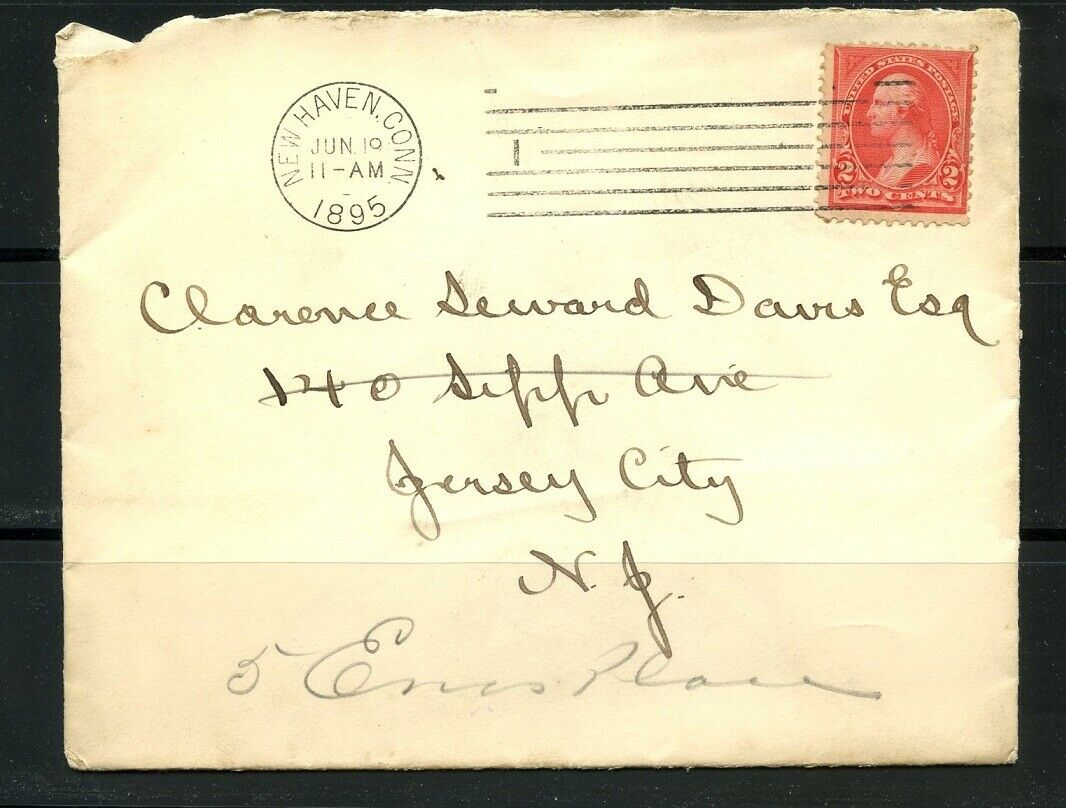 NEW HAVEN, CONN.
JUN. 19
11-AM
1895
1
UNITED STATES POSTAGE
2 2
TWO CENTS
Clarence Seward Davis Esq
140 Sipp Ave
Jersey City
N. J.
5 Place